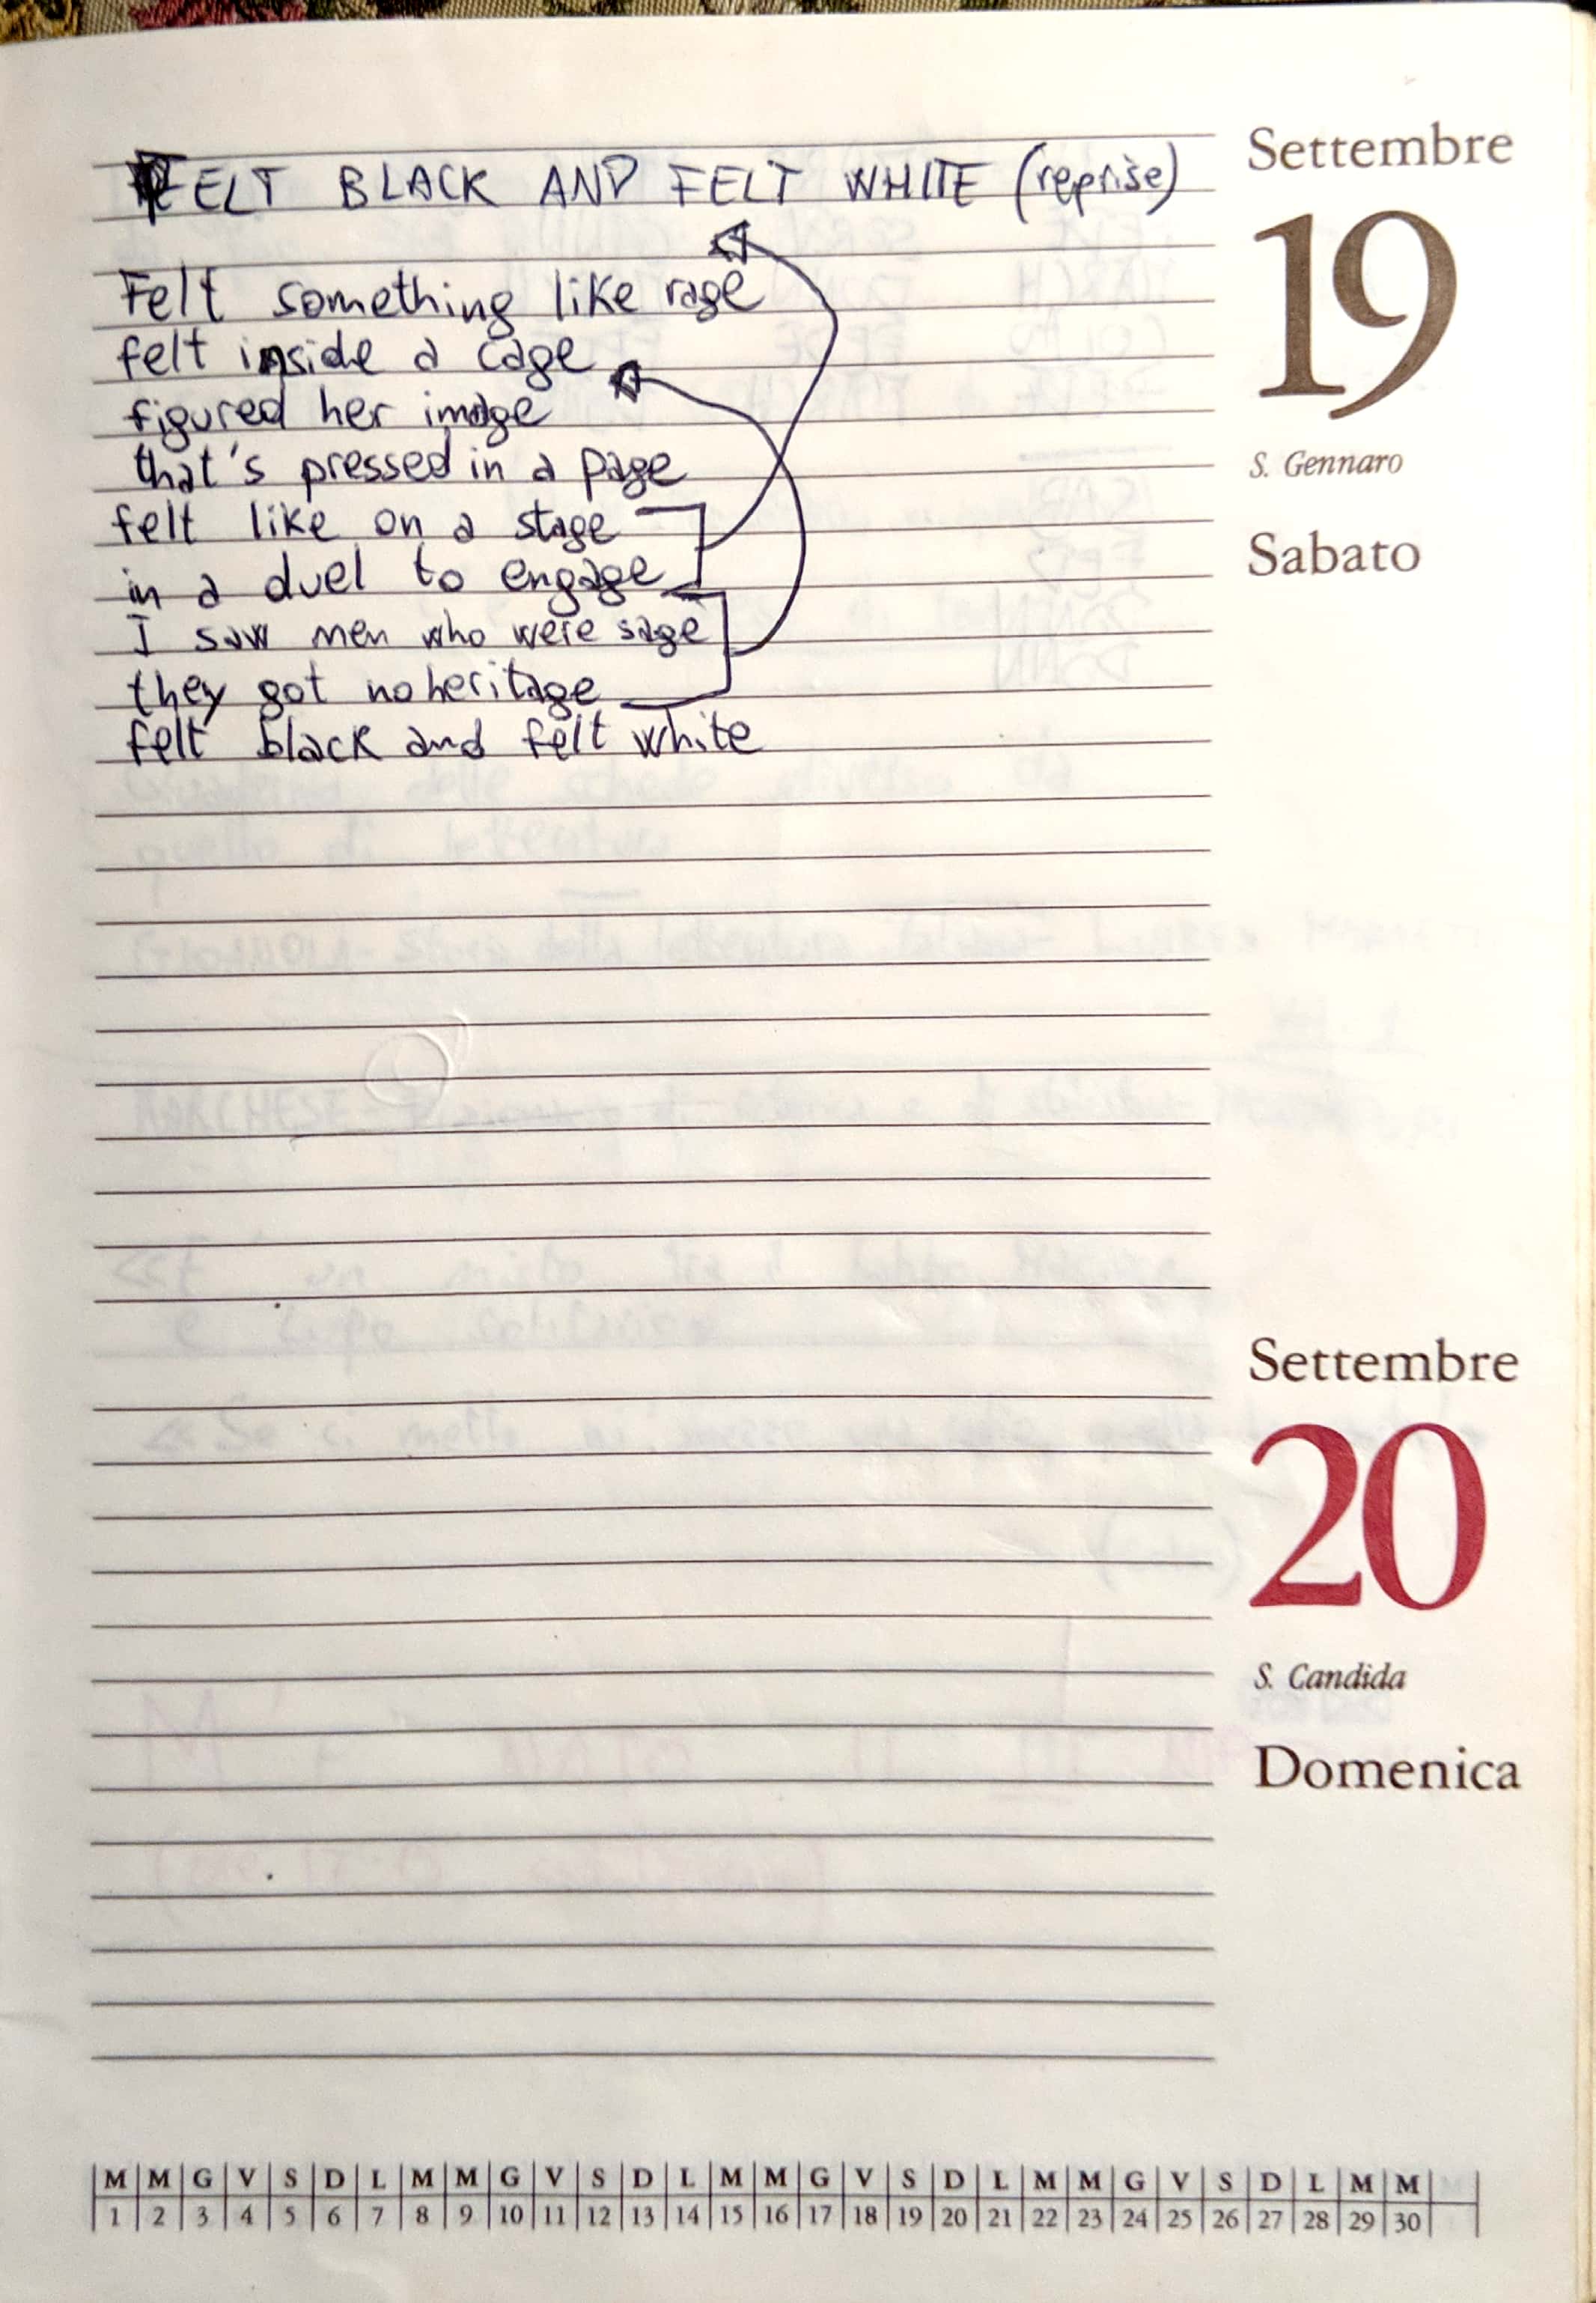 FELT BLACK AND FELT WHITE (reprise)
Felt something like rage
felt inside a cage
figured her image
that's pressed in a page
felt like on a stage
in a duel to engage
I saw men who were sage
they got no heritage
felt black and felt white
Settembre
19
S. Gennaro
Sabato
Settembre
20
S. Candida
Domenica
M M G V S D L M M G V S D L M M G V S D L M M G V S D L M M
1 2 3 4 5 6 7 8 9 10 11 12 13 14 15 16 17 18 19 20 21 22 23 24 25 26 27 28 29 30